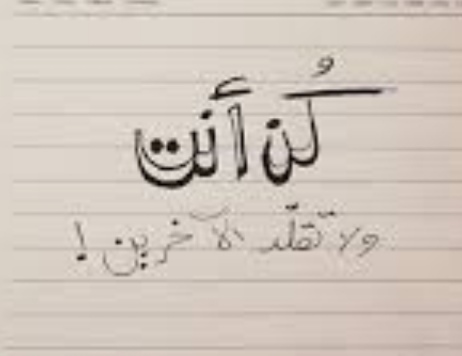 كُن أنت
ولا تقلّد الآخرين !